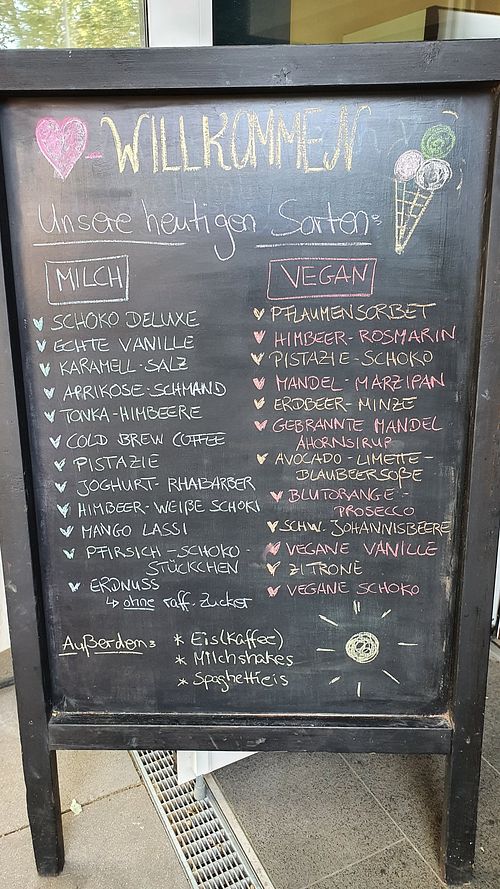 WILLKOMMEN
Unsere heutigen Sorten:
MILCH
SCHOKO DELUXE
ECHTE VANILLE
KARAMELL-SALZ
APRIKOSE-SCHMAND
TONKA-HIMBEERE
COLD BREW COFFEE
PISTAZIE
JOGHURT-RHABARBER
HIMBEER-WEIßE SCHOKI
MANGO LASSI
PFIRSICH-SCHOKO-
STÜCKCHEN
ERDNUSS
↳ ohne raff. Zucker
VEGAN
PFLAUMENSORBET
HIMBEER-ROSMARIN
PISTAZIE-SCHOKO
MANDEL-MARZIPAN
ERDBEER-MINZE
GEBRANNTE MANDEL
AHORNSIRUP
AVOCADO-LIMETTE-
BLAUBEERSOßE
BLUTORANGE-
PROSECCO
SCHW. JOHANNISBEERE
VEGANE VANILLE
ZITRONE
VEGANE SCHOKO
Außerdem:
* Eis(kaffee)
* Milchshakes
* Spaghettieis